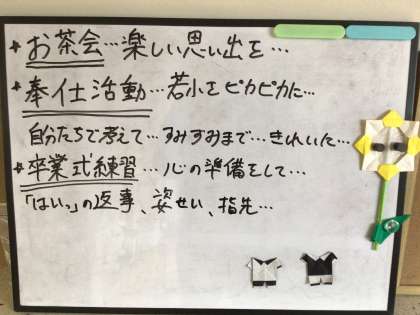 ★お茶会…楽しい思い出を…
★奉仕活動…若小をピカピカに…
自分たちで考えて…すみずみまで…きれいに…
★卒業式練習…心の準備をして…
「はいっ」の返事、姿せい、指先…